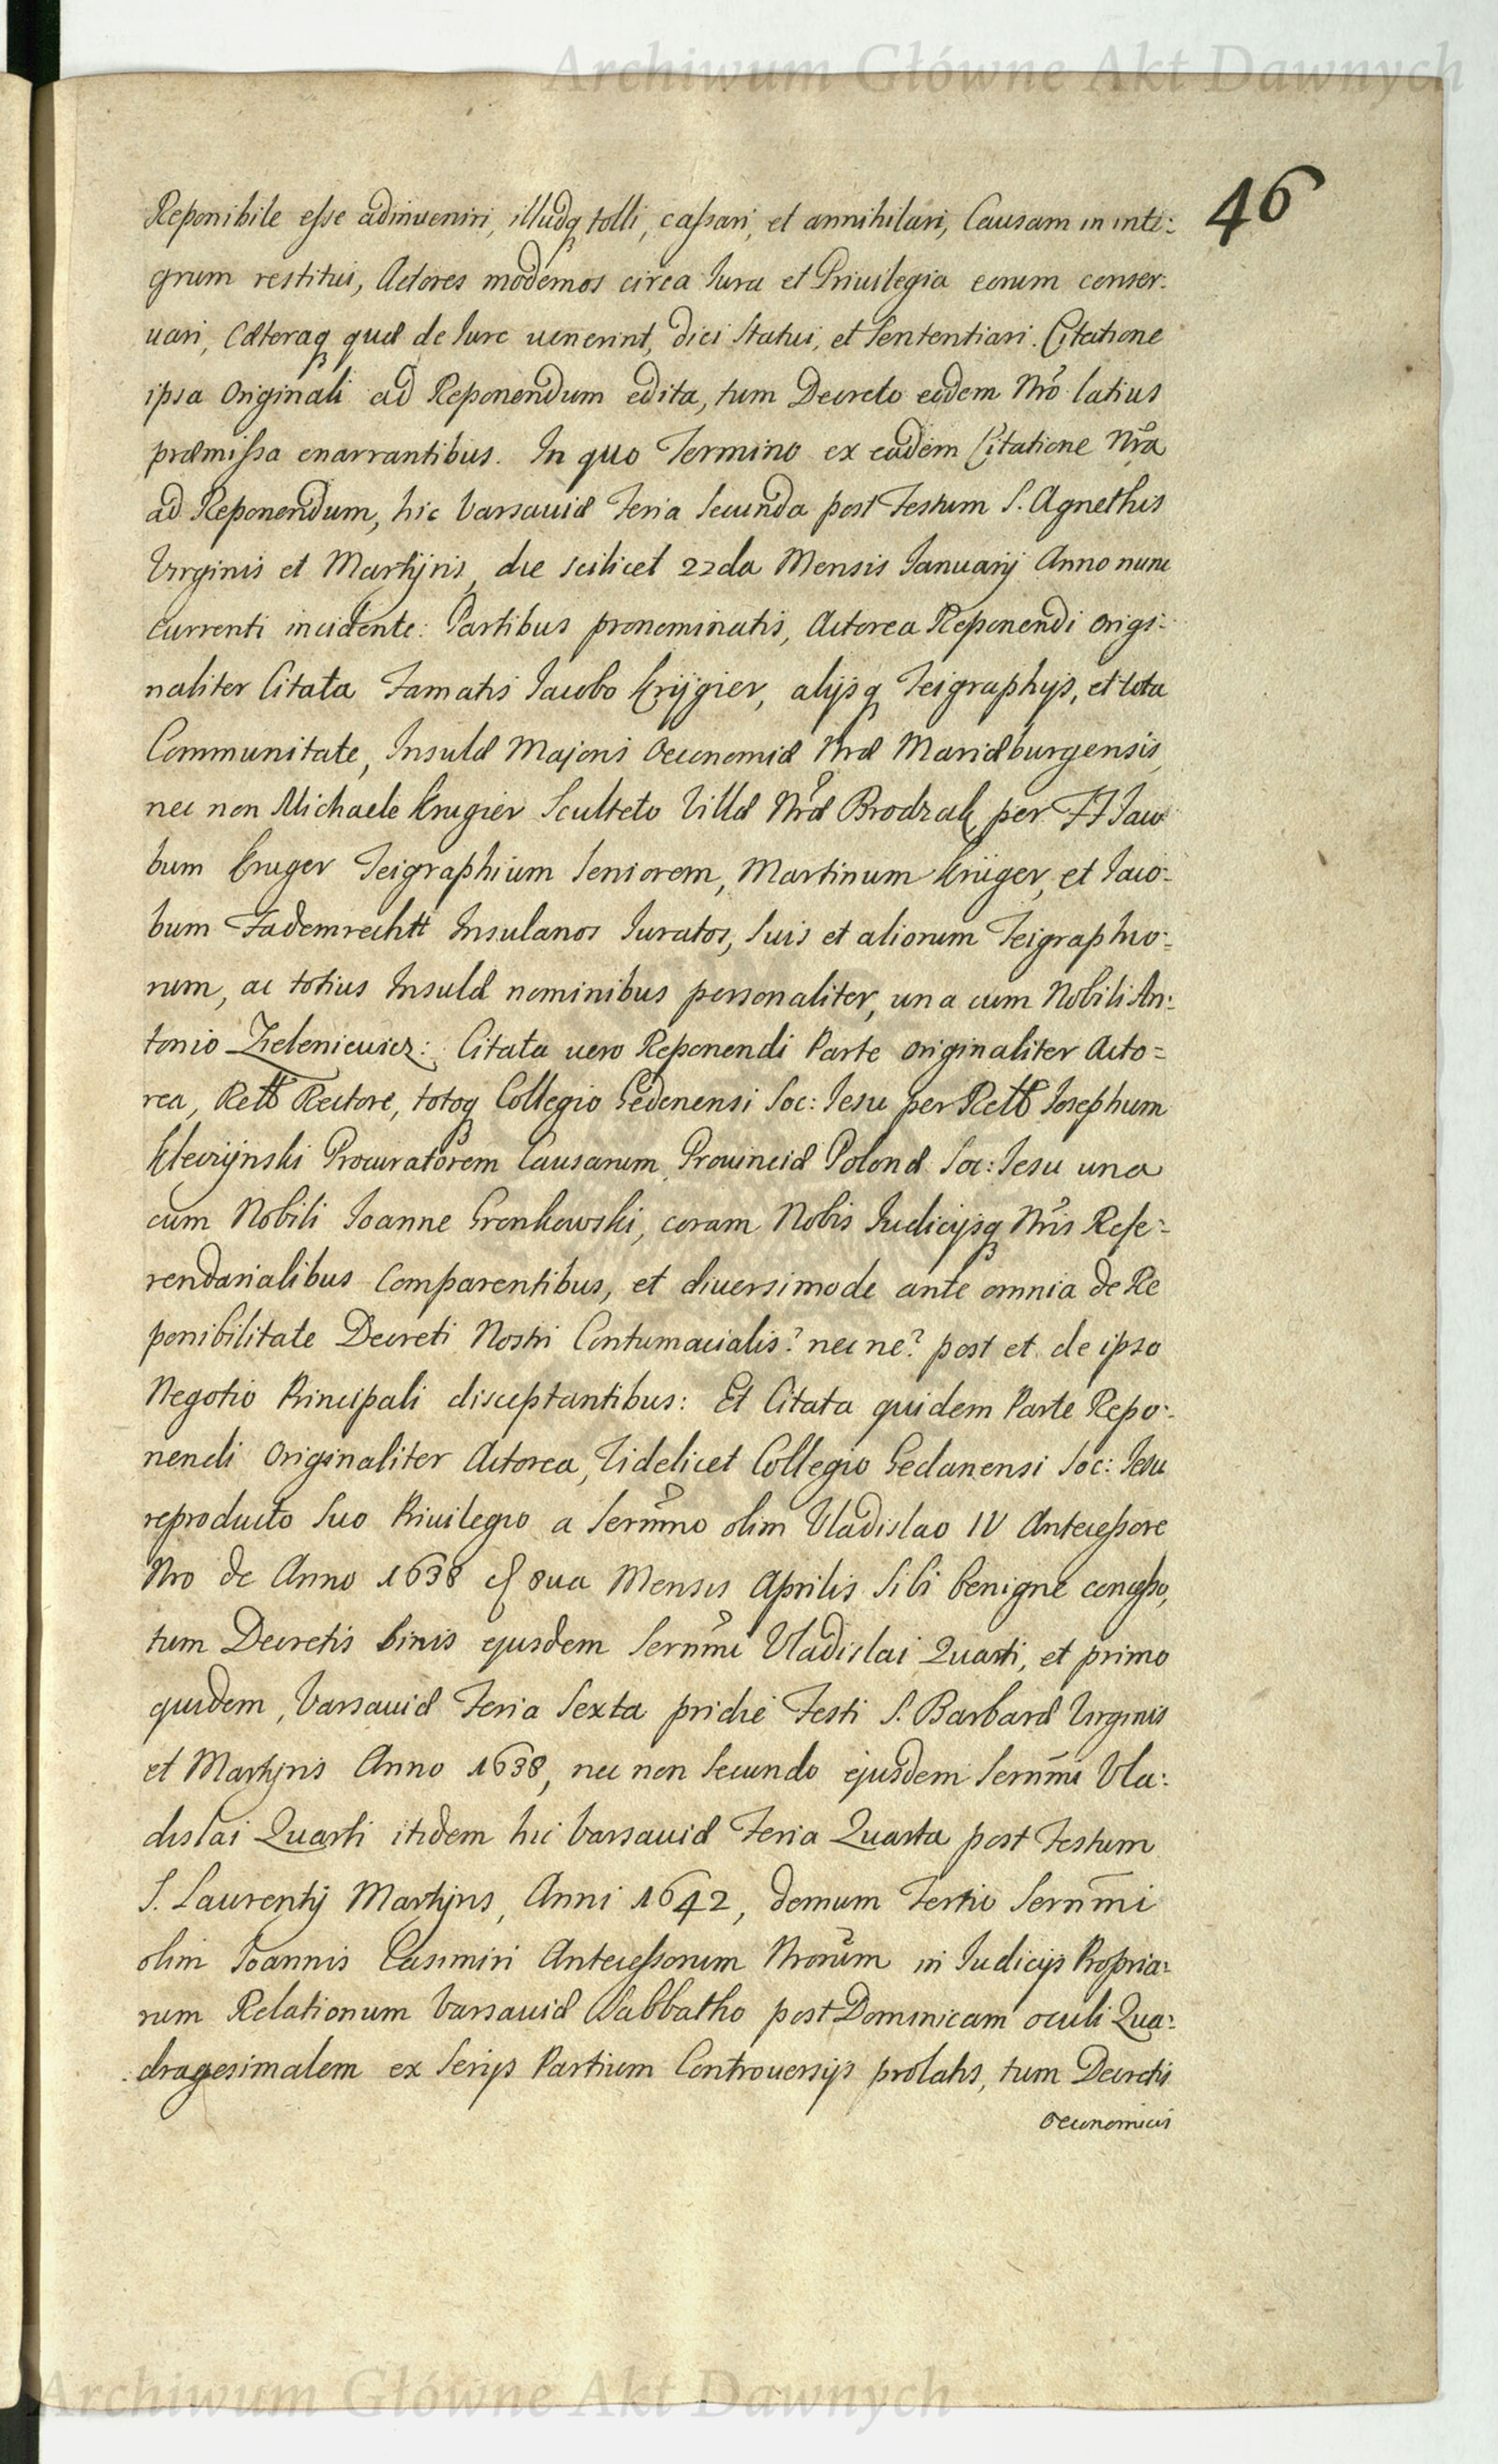 Archiwum Główne Akt Dawnych
46
Reponibile esse adinueniri, illudq tolli, cassari, et annihilari, Causam in inte:
grum restitui, Actores modernos circa Iura et Priuilegia eorum conser:
uari, Cæteraq quæ de Iure uenerint, dici statui, et sententiari. Citatione
ipsa Originali ad Reponendum edita, tum Decreto eodem Nrõ latius
præmissa enarrantibus. In quo Termino ex eadem Citatione Nrã
ad Reponendum, hic Varsauiæ Feria Secunda post Festum S. Agnethis
Virginis et Martÿris, die scilicet 22da Mensis Ianuarÿ Anno nunc
currenti incidente: Partibus prænominatis, Actorea Reponendi origi:
naliter Citata Famatis Iacobo Krÿgier, alÿsq Teigraphÿs, et tota
Communitate, Insulæ Majoris Oeconomiæ Nræ Mariæburgensis,
nec non Michaele Krugier Sculteto Villæ Nræ Brodzak, per FF Iaco
bum Kruger Teigraphium Seniorem, Martinum Krüger, et Iaco:
bum Fademrechtt Insulanos Iuratos, Suis et aliorum Teigraphio:
rum, ac totius Insulæ nominibus personaliter, una cum Nobili An:
tonio Zieleniewicz: Citata uero Reponendi Parte originaliter Acto=
rea, Rndo Rectore, totoq Collegio Gedanensi Soc: Iesu per Rndo Iosephum
Kleczÿnski Procuratorem Causarum Prouinciæ Polonæ Soc: Iesu una
cum Nobili Ioanne Gronkowski, coram Nobis Iudicÿsq Nrĩs Refe:
rendarialibus Comparentibus, et diuersimode ante omnia de Re
ponibilitate Decreti Nostri Contumacialis? nec ne? post et de ipso
Negotio Principali disceptantibus: Et Citata quidem Parte Repo:
nendi Originaliter Actorea, Videlicet Collegio Gedanensi Soc: Iesu
reproducto Suo Priuilegio a Sernm̃o olim Vladislao IV Antecessore
Nro de Anno 1638 8ua Mensis Aprilis Sibi benigne concesso,
tum Decretis binis ejusdem Sernm̃i Vladislai Quarti, et primo
quidem, Varsauiæ Feria Sexta pridie Festi S. Barbaræ Virginis
et Martÿris Anno 1638, nec non Secundo ejusdem Sernm̃i Vla:
dislai Quarti itidem hic Varsauiæ Feria Quarta post Festum
S. Laurentÿ Martÿris, Anni 1642, demum Tertio Sernm̃i
olim Ioannis Casimiri Antecessorum Nrorũm in Iudicÿs Propria:
rum Relationum Varsauiæ Sabbatho post Dominicam oculi Qua:
dragesimalem ex Serÿs Partium Controuersÿs prolatis, tum Decretis
oeconomicis
Archiwum Główne Akt Dawnych